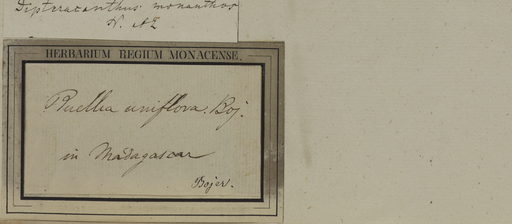 Dipteracanthus monanthos
N. AE
HERBARIUM REGIUM MONACENSE.
Ruellia uniflora. Boj.
in Madagascar
Bojer.